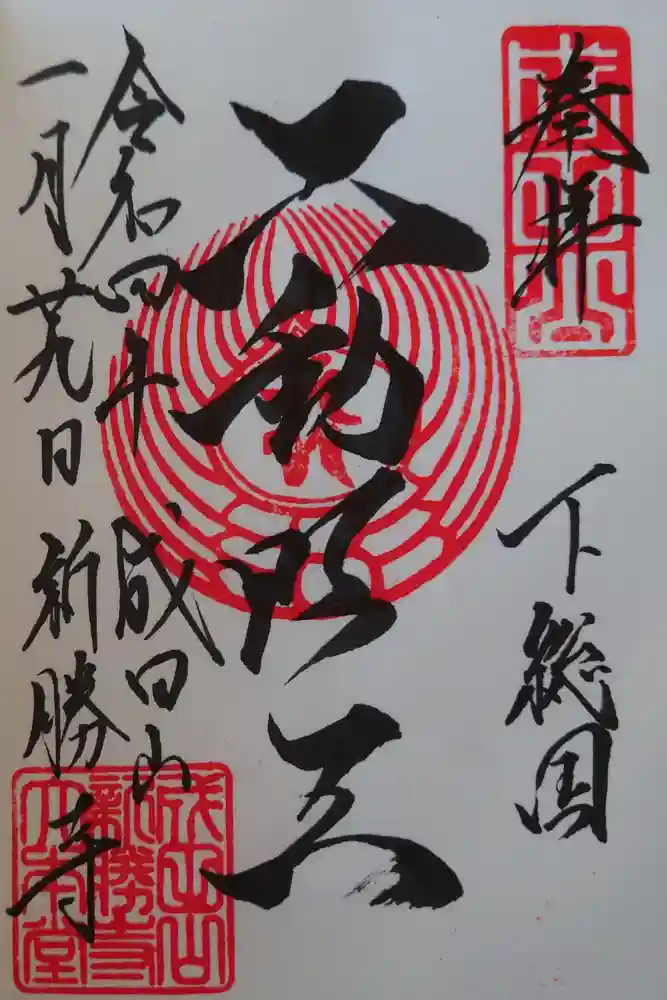 奉拝
下総国
不動明王
令和四年 成田山
一月廿九日 新勝寺
成田山
新勝寺
大本堂